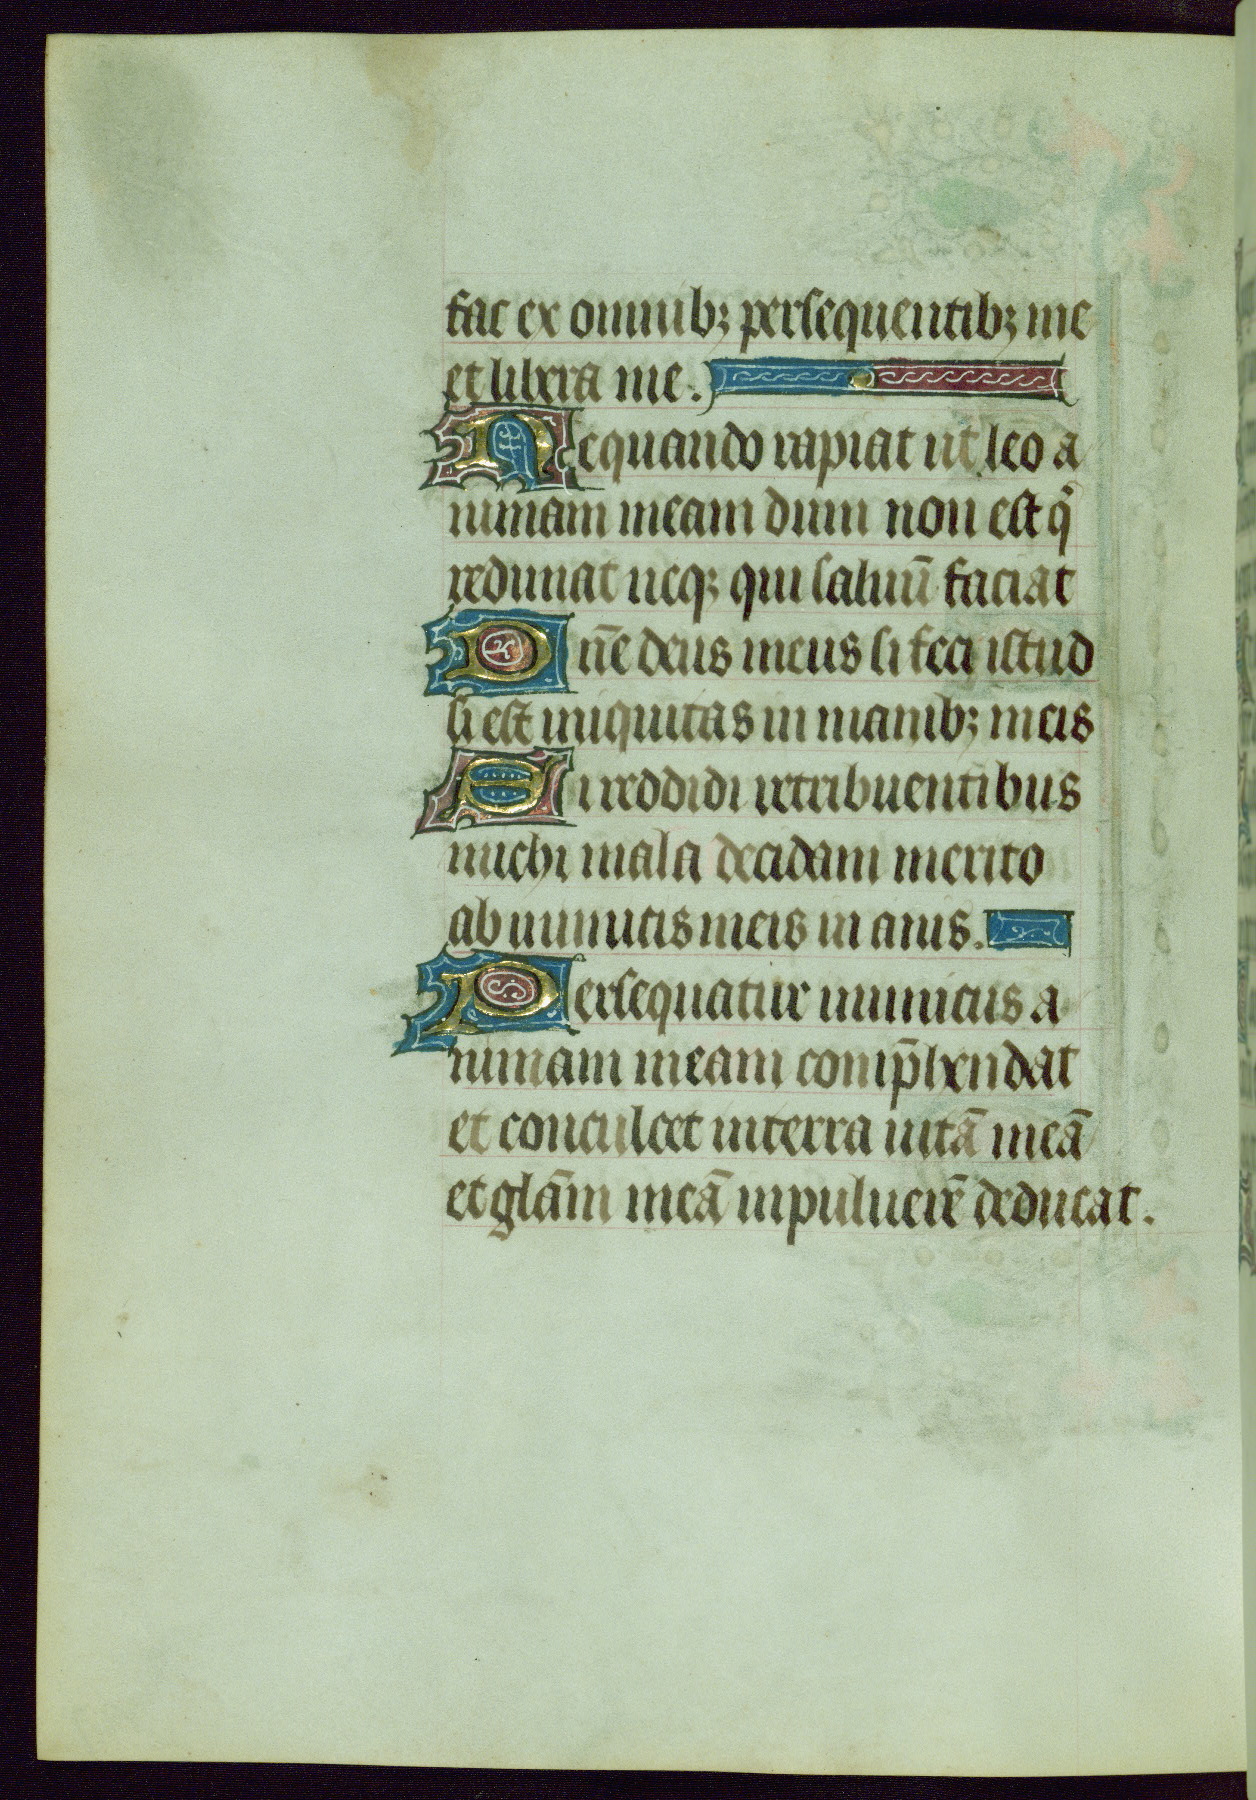 fac ex omnibꝫ persequentibꝫ me
et libera me.
Nequando rapiat ut leo a
nimam meam dum non est qͥ
redimat neqꝫ qui saluū faciat
Dn̄e deus meus si feci istud
si est iniquitas in manibꝫ meis
Si reddidi retribuentibus
michi mala decidam merito
ab inimicis meis inanis.
Persequatur inimicus a
nimam meam comp̄hendat
et conculcet in terra uitā meā
et glām meā in puluerē deducat.